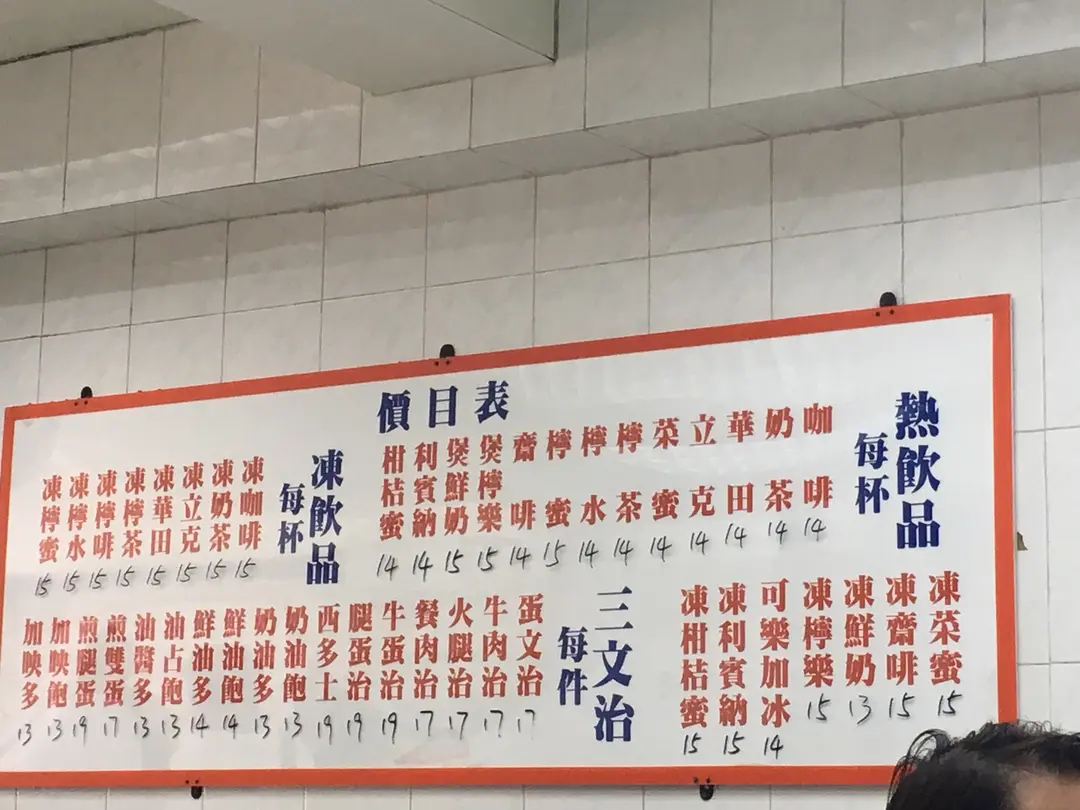 價目表
熱飲品
每杯
咖啡 14
奶茶 14
華田 14
立克 14
菜蜜 14
檸茶 14
檸水 14
檸蜜 15
齋啡 14
煲檸樂 15
煲鮮奶 15
利賓納 14
柑桔蜜 14
凍飲品
每杯
凍咖啡 15
凍奶茶 15
凍立克 15
凍華田 15
凍檸茶 15
凍檸啡 15
凍檸水 15
凍檸蜜 15
凍菜蜜 15
凍齋啡 15
凍鮮奶 13
凍檸樂 15
可樂加冰 14
凍利賓納 15
凍柑桔蜜 15
三文治
每件
蛋文治 17
牛肉治 17
火腿治 17
餐肉治 17
牛蛋治 19
腿蛋治 19
西多士 19
奶油飽 13
奶油多 13
鮮油飽 14
鮮油多 14
油占飽 13
油醬多 13
煎雙蛋 17
煎腿蛋 19
加映飽 13
加映多 13